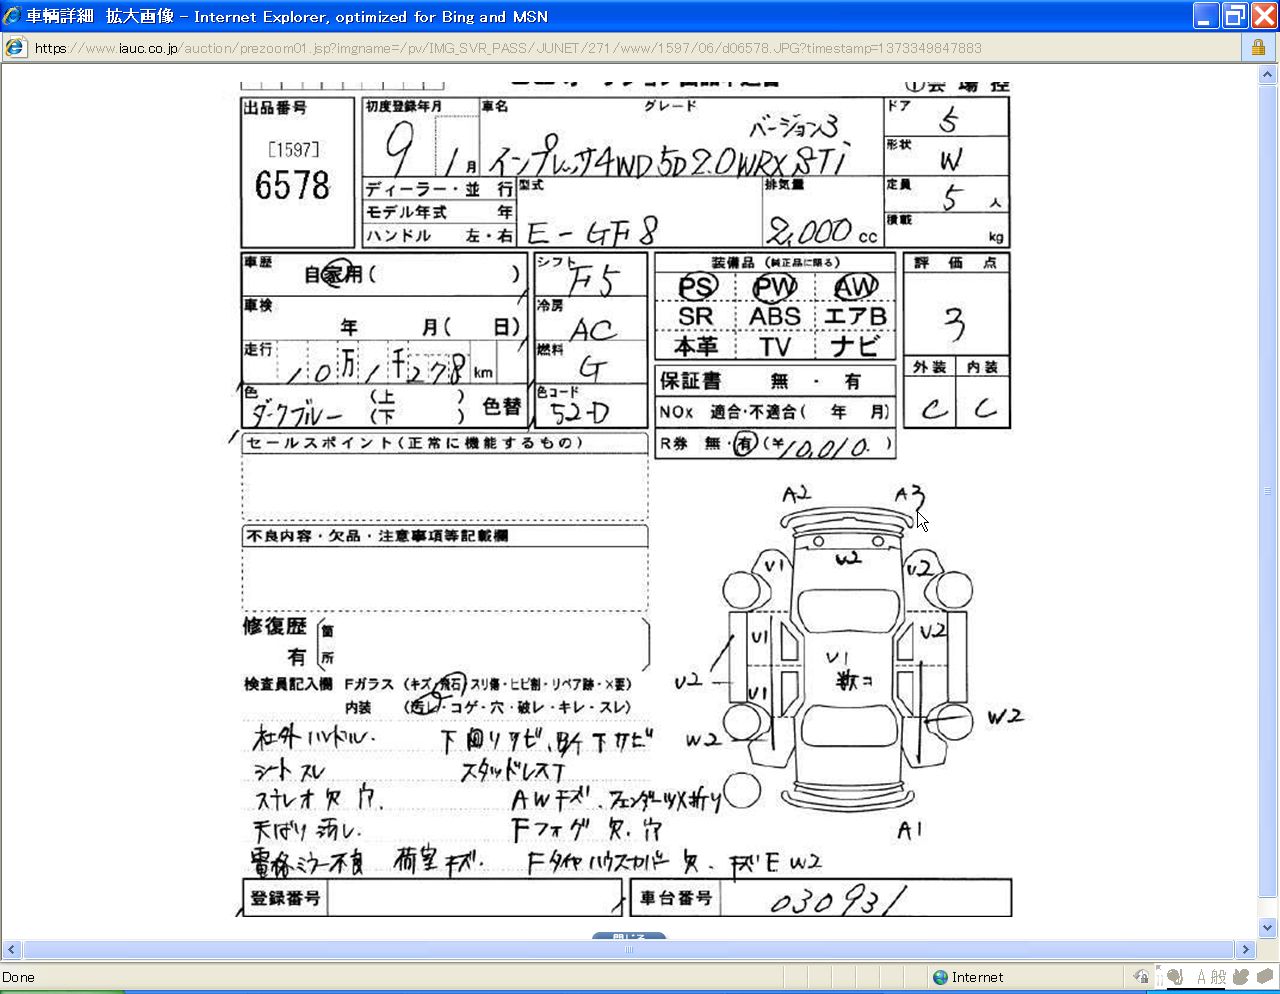 車輌詳細 拡大画像 - Internet Explorer, optimized for Bing and MSN
https://www.iauc.co.jp/auction/prezoom01.jsp?imgname=/pv/IMG_SVR_PASS/JUNET/271/www/1597/06/d06578.JPG?timestamp=1373349847883
出品番号
[1597]
6578
初度登録年月 車名 グレード
9 1月
バージョン3
インプレッサ4WD 5D 2.0WRX STi
ドア 5
形状 W
定員 5人
積載 kg
ディーラー・並 行
モデル年式 年
ハンドル 左・右
型式 E-GF8
排気量 2,000 cc
車歴 自家用( )
車検 年 月( 日)
走行 10万1千278km
色 ダークブルー (上 ) (下 ) 色替
シフト F5
冷房 AC
燃料 G
色コード 52-D
装備品(純正品に限る)
PS PW AW
SR ABS エアB
本革 TV ナビ
保証書 無・有
NOx 適合・不適合( 年 月)
R券 無・有(¥10,010. )
評価点
3
外装 内装
C C
セールスポイント(正常に機能するもの)
不良内容・欠品・注意事項等記載欄
修復歴 箇
有 所
検査員記入欄 Fガラス (キズ・飛石・スリ傷・ヒビ割・リペア跡・×要)
内装 (汚レ・コゲ・穴・破レ・キレ・スレ)
社外ハンドル. 下回リサビ、B/F下サビ
シートスレ スタッドレスT
ステレオ欠 穴. AWキズ、フェンダーツメ折リ
天ばり汚レ. Fフォグ欠、穴
電格ミラー不良 荷室キズ. Fタイヤハウスカバー欠、キズE W2
A2 A3
W2
V1 V2
V1 V2
V1
数コ
V2 V1
W2
W2
A1
登録番号
車台番号 030931
閉じる
Done
Internet
A 般